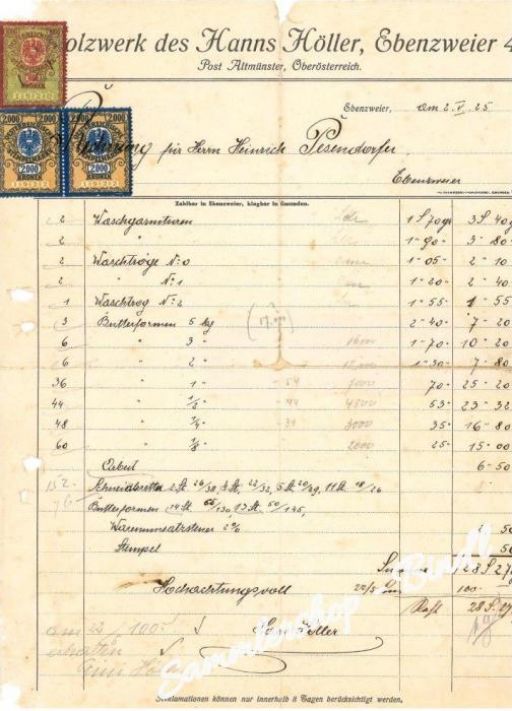 olzwerk des Hanns Höller, Ebenzweier 4
Post Altmünster, Oberösterreich.
Ebenzweier, am 2. V. 25
Rechnung für Herrn Heinrich Pesendorfer
Ebenzweier
Zahlbar in Ebenzweier, klagbar in Gmunden.
2 Waschgarnituren 1 S 70 gr 3 S 40 g
2 " 1-90- 3-80
2 Waschtröge No 0 1-05- 2-10
2 " No 1 1-20- 2-40
1 Waschtrog No 2 1-55- 1-55
3 Butterformen 5 kg 2-40- 7-20
6 " 3 " 1-70- 10-20
6 " 2 " 1-30- 7-80
36 " 1 " 70- 25-20
44 " 1/2 " 53- 23-32
48 " 1/4 " 35- 16-80
60 " 1/8 " 25- 15-00
6-50
Butterformen
Warenumsatzsteuer 2%
Stempel 50
128 S 27
Hochachtungsvoll 22/5 100-
Rest 28 S 27
am 22/5 100
erhalten
Sammlershop - Bindl
Reklamationen können nur innerhalb 8 Tagen berücksichtigt werden.
2.000 2.000
2.000 2.000